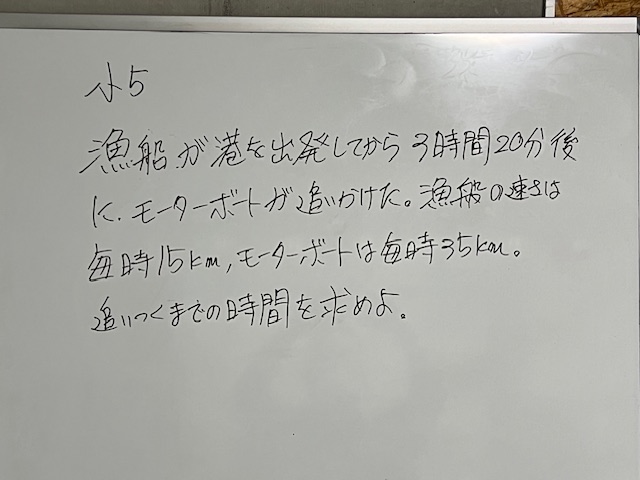 小5
漁船が港を出発してから3時間20分後
に、モーターボートが追いかけた。漁船の速さは
毎時15km,モーターボートは毎時35km。
追いつくまでの時間を求めよ。